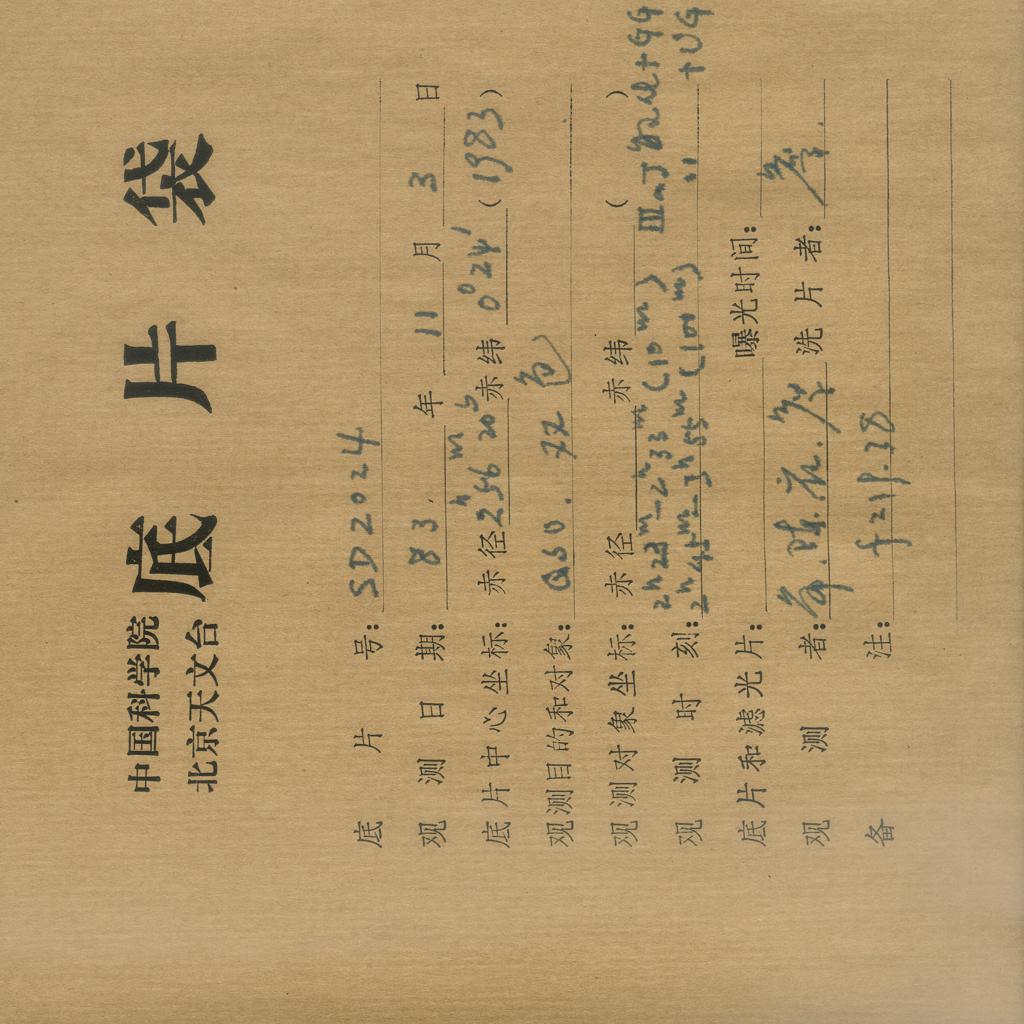 中国科学院
北京天文台
底片袋
底片号: SD2024
观测日期: 83. 年 11 月 3 日
底片中心坐标: 赤径 2h56m20s 赤纬 0°24′ (1983)
观测目的和对象: QSO. 双色
观测对象坐标: 赤径 赤纬 ( )
2h23m—2h33m (10m) IIIaJ +GG
观测时刻: 2h45m—3h55m (100m) " +UG
底片和滤光片: 曝光时间:
观测者: 陈. 洗片者:
备注: f=219.38